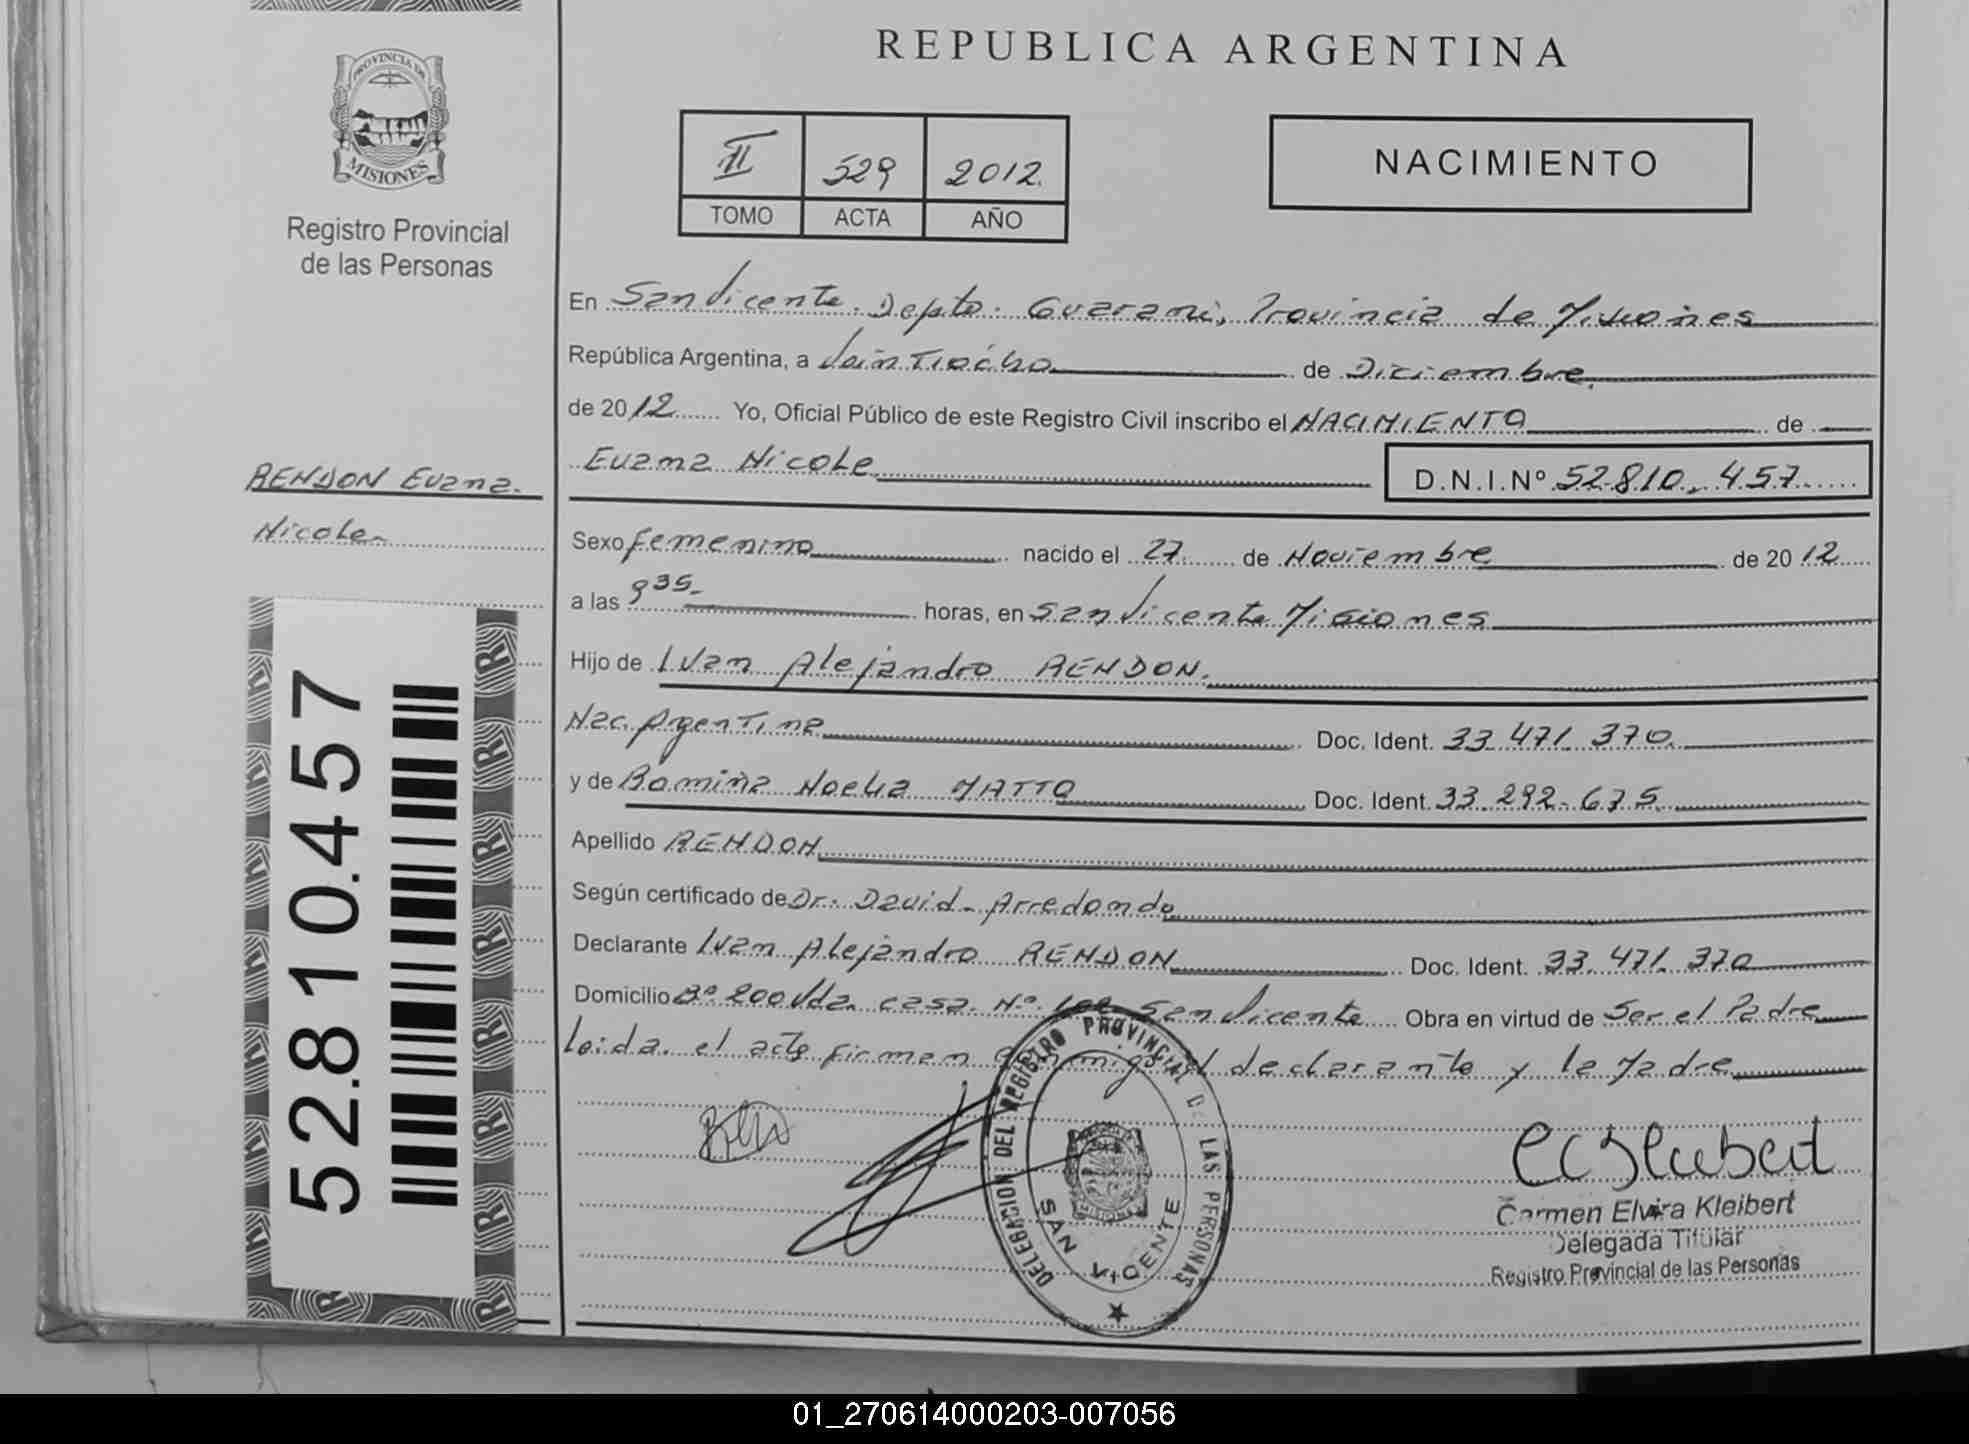 REPUBLICA ARGENTINA
PROVINCIA DE
MISIONES
Registro Provincial
de las Personas
II 529 2012.
TOMO ACTA AÑO
NACIMIENTO
En San Vicente. Depto. Guarani, Provincia de Misiones
República Argentina, a Veintiocho de Diciembre.
de 2012 Yo, Oficial Público de este Registro Civil inscribo el NACIMIENTO de
Evana Nicole D.N.I.Nº 52.810.457
RENDON Evana.
Nicole
Sexo femenino nacido el 27 de Noviembre de 2012
a las 9 35 horas, en San Vicente Misiones
Hijo de Ivan Alejandro RENDON.
Nac. Argentina Doc. Ident. 33 471 370
y de Romina Noelia MATTO Doc. Ident. 33.292.675
Apellido RENDON
Según certificado de Dr. David Arredondo
Declarante Ivan Alejandro RENDON Doc. Ident. 33.471.370
Domicilio Bº 200 Vda. casa Nº San Vicente Obra en virtud de Ser el Padre
Leida el acta firman conmigo el declarante y la Madre
52.810.457
DELEGACION DEL REGISTRO PROVINCIAL DE LAS PERSONAS
SAN VICENTE
MISIONES
Carmen Elvira Kleibert
Delegada Titular
Registro Provincial de las Personas
01_270614000203-007056